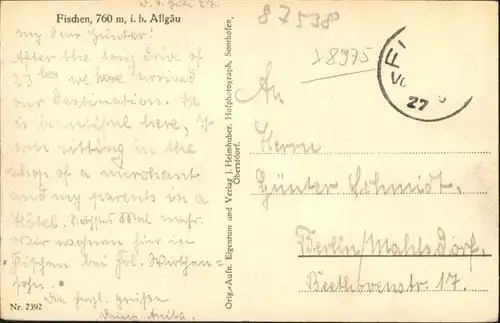 d. 4. Juli 27.
Fischen, 760 m, i. b. Allgäu
My dear Günter!
After the long drive of
23 hours we have arrived
our destination. It
is beautiful here, I
am sitting in the
shop of a merchant
and my parents in a
Hôtel. Nächstes Mal mehr.
Wir wohnen hier in
Fischen bei Frl.
Die herzl. Grüße
Deine Anita.
Nr. 2392
Orig.-Aufn. Eigentum und Verlag J. Heimhuber, Hofphotograph, Sonthofen,
Oberstdorf.
87538
18975
27
An
Herrn
Günter Schmidt.
Berlin/Mahlsdorf.
Beethovenstr. 17.